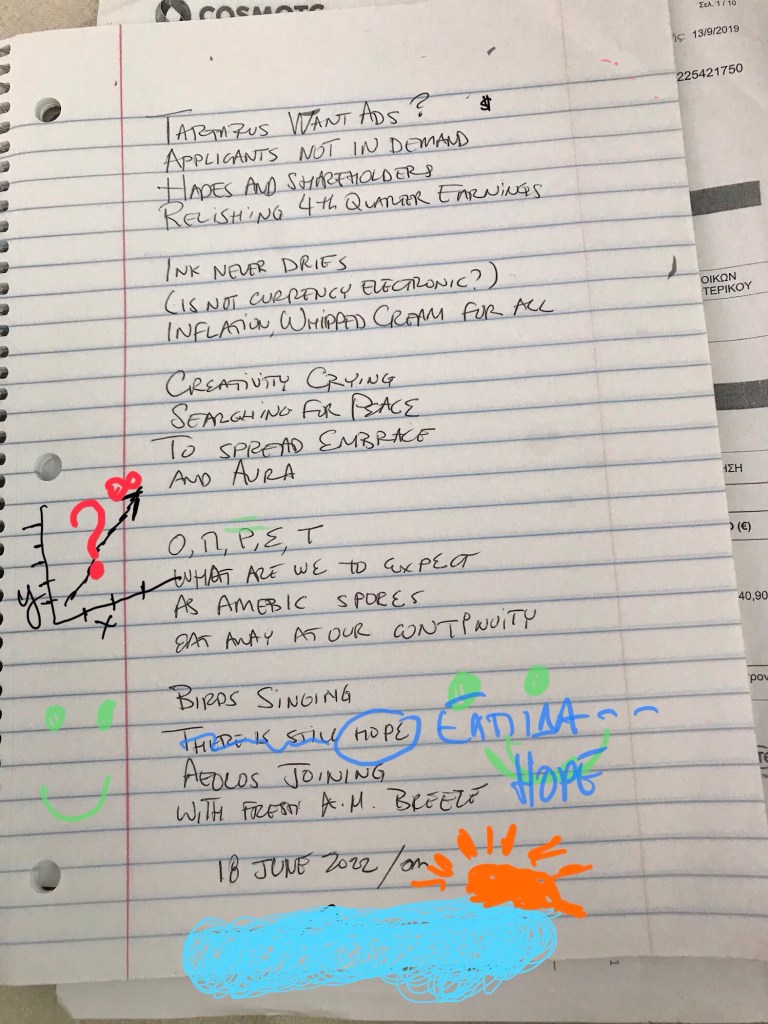 COSMOTE
Σελ. 1 / 10
13/9/2019
225421750
TARTAZUS WANT ADS? $
APPLICANTS NOT IN DEMAND
HADES AND SHAREHOLDERS
RELISHING 4th QUARTER EARNINGS
ΟΙΚΩΝ
ΤΕΡΙΚΟΥ
INK NEVER DRIES
(IS NOT CURRENCY ELECTRONIC?)
INFLATION, WHIPPED CREAM FOR ALL
CREATIVITY CRYING
SEARCHING FOR PEACE
TO SPREAD EMBRACE
AND AURA
ΗΣΗ
(€)
40,90
? ∞
y
x
O, Π, P, Σ, T
WHAT ARE WE TO EXPECT
AS AMEBIC SPORES
EAT AWAY AT OUR CONTPNUITY
BIRDS SINGING
THERE IS STILL HOPE ΕΛΠΙΔΑ - -
AEOLOS JOINING HOPE
WITH FRESH A.M. BREEZE
18 JUNE 2022 / am